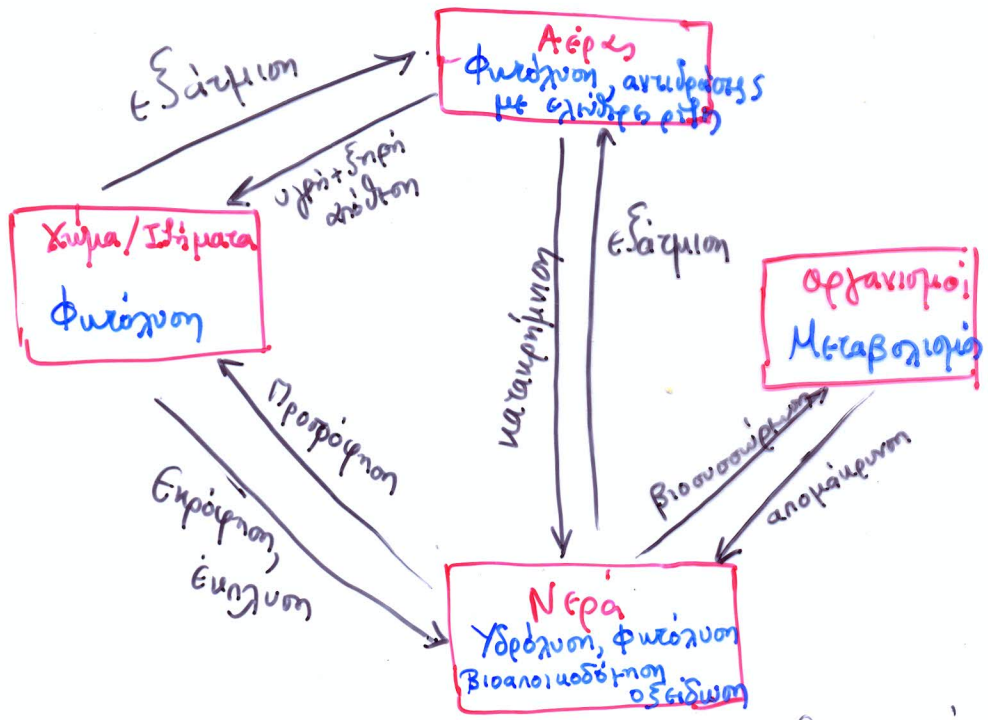 Αέρας
Φωτόλυση, αντιδράσεις
με ελεύθερες ρίζες
εξάτμιση
υγρή + ξηρή
απόθεση
Χώμα/Ιζήματα
Φωτόλυση
κατακρήμνιση
εξάτμιση
οργανισμοί
Μεταβολισμό
Προσρόφηση
Εκρόφηση,
έκπλυση
βιοσυσσώρευση
απομάκρυνση
Νερά
Υδρόλυση, Φωτόλυση
Βιοαποικοδόμηση
οξείδωση